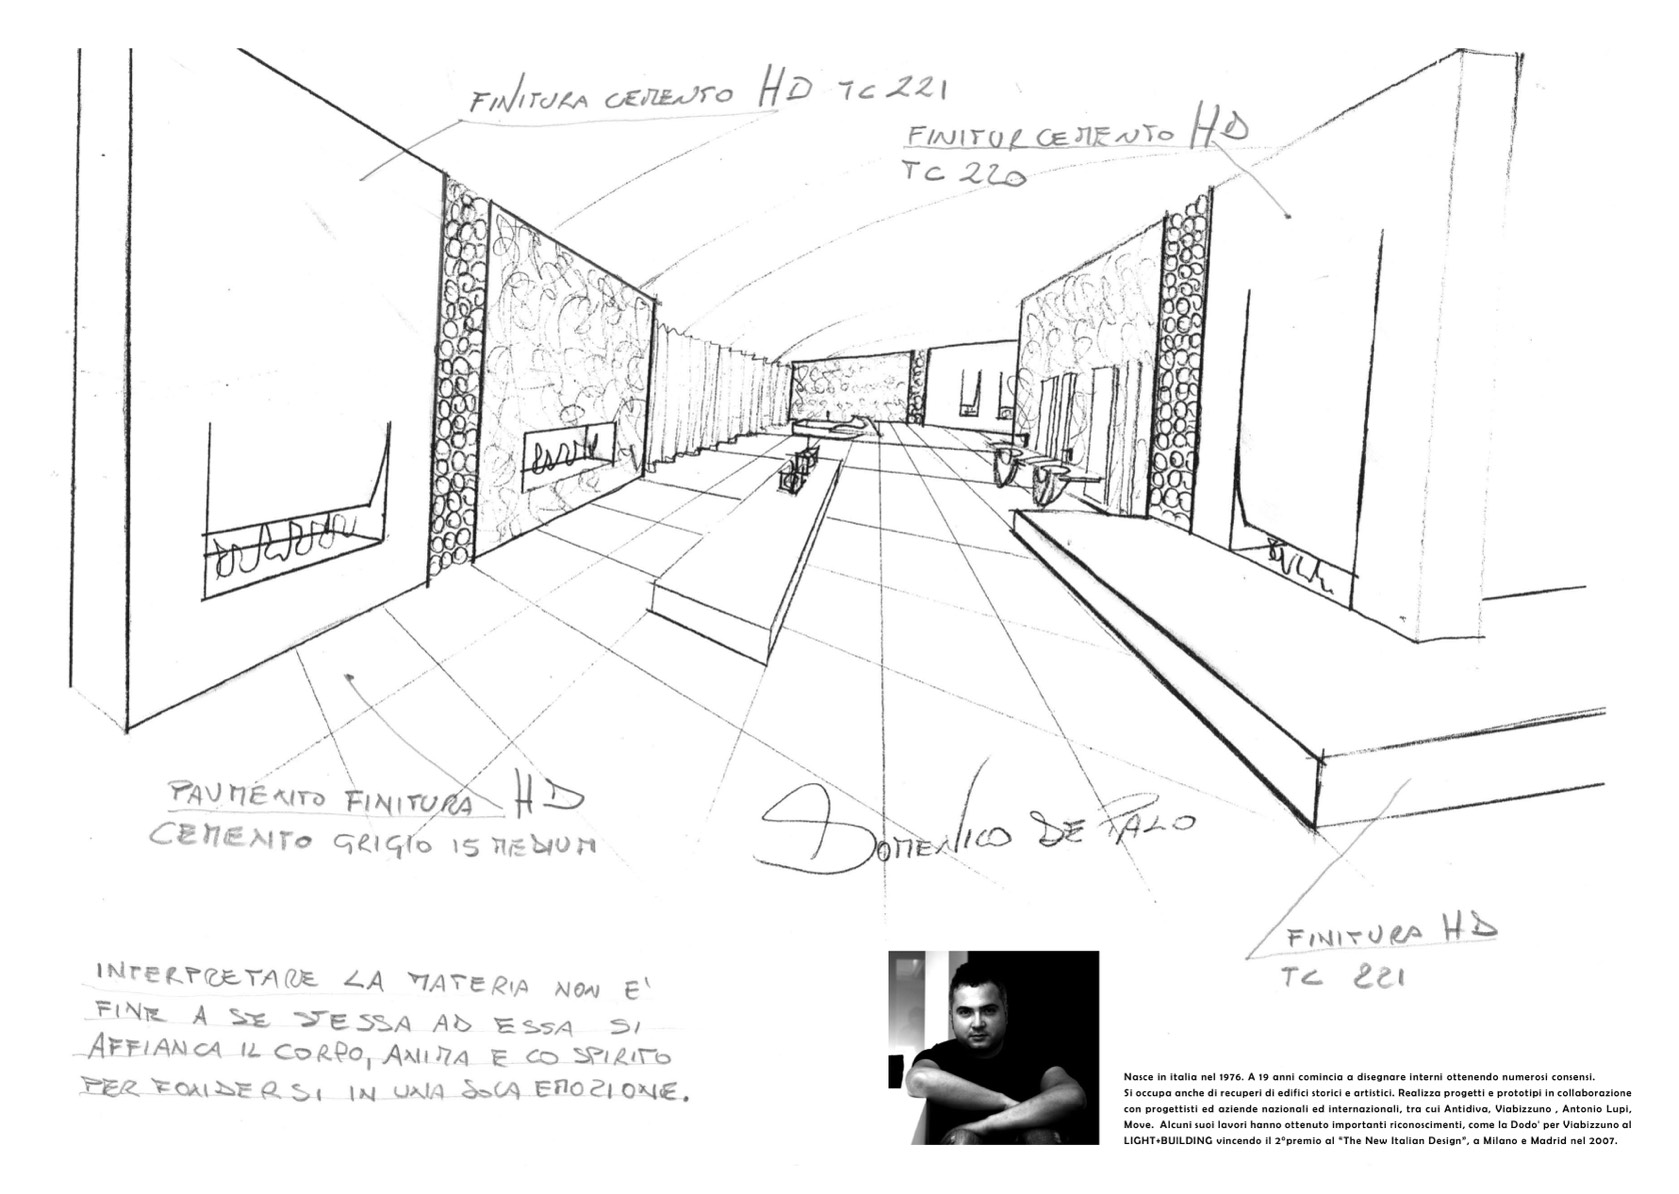 FINITURA CEMENTO HD TC 221
FINITUR CEMENTO HD
TC 220
PAVMENTO FINITURA HD
CEMENTO GRIGIO 15 MEDIUM
DOMENICO DE PALO
FINITURA HD
TC 221
INTERPRETARE LA MATERIA NON E'
FINE A SE STESSA AD ESSA SI
AFFIANCA IL CORPO, ANIMA E CO SPIRITO
PER FONDERSI IN UNA SOLA EMOZIONE.
Nasce in italia nel 1976. A 19 anni comincia a disegnare interni ottenendo numerosi consensi.
Si occupa anche di recuperi di edifici storici e artistici. Realizza progetti e prototipi in collaborazione
con progettisti ed aziende nazionali ed internazionali, tra cui Antidiva, Viabizzuno , Antonio Lupi,
Move. Alcuni suoi lavori hanno ottenuto importanti riconoscimenti, come la Dodo' per Viabizzuno al
LIGHT+BUILDING vincendo il 2°premio al "The New Italian Design", a Milano e Madrid nel 2007.